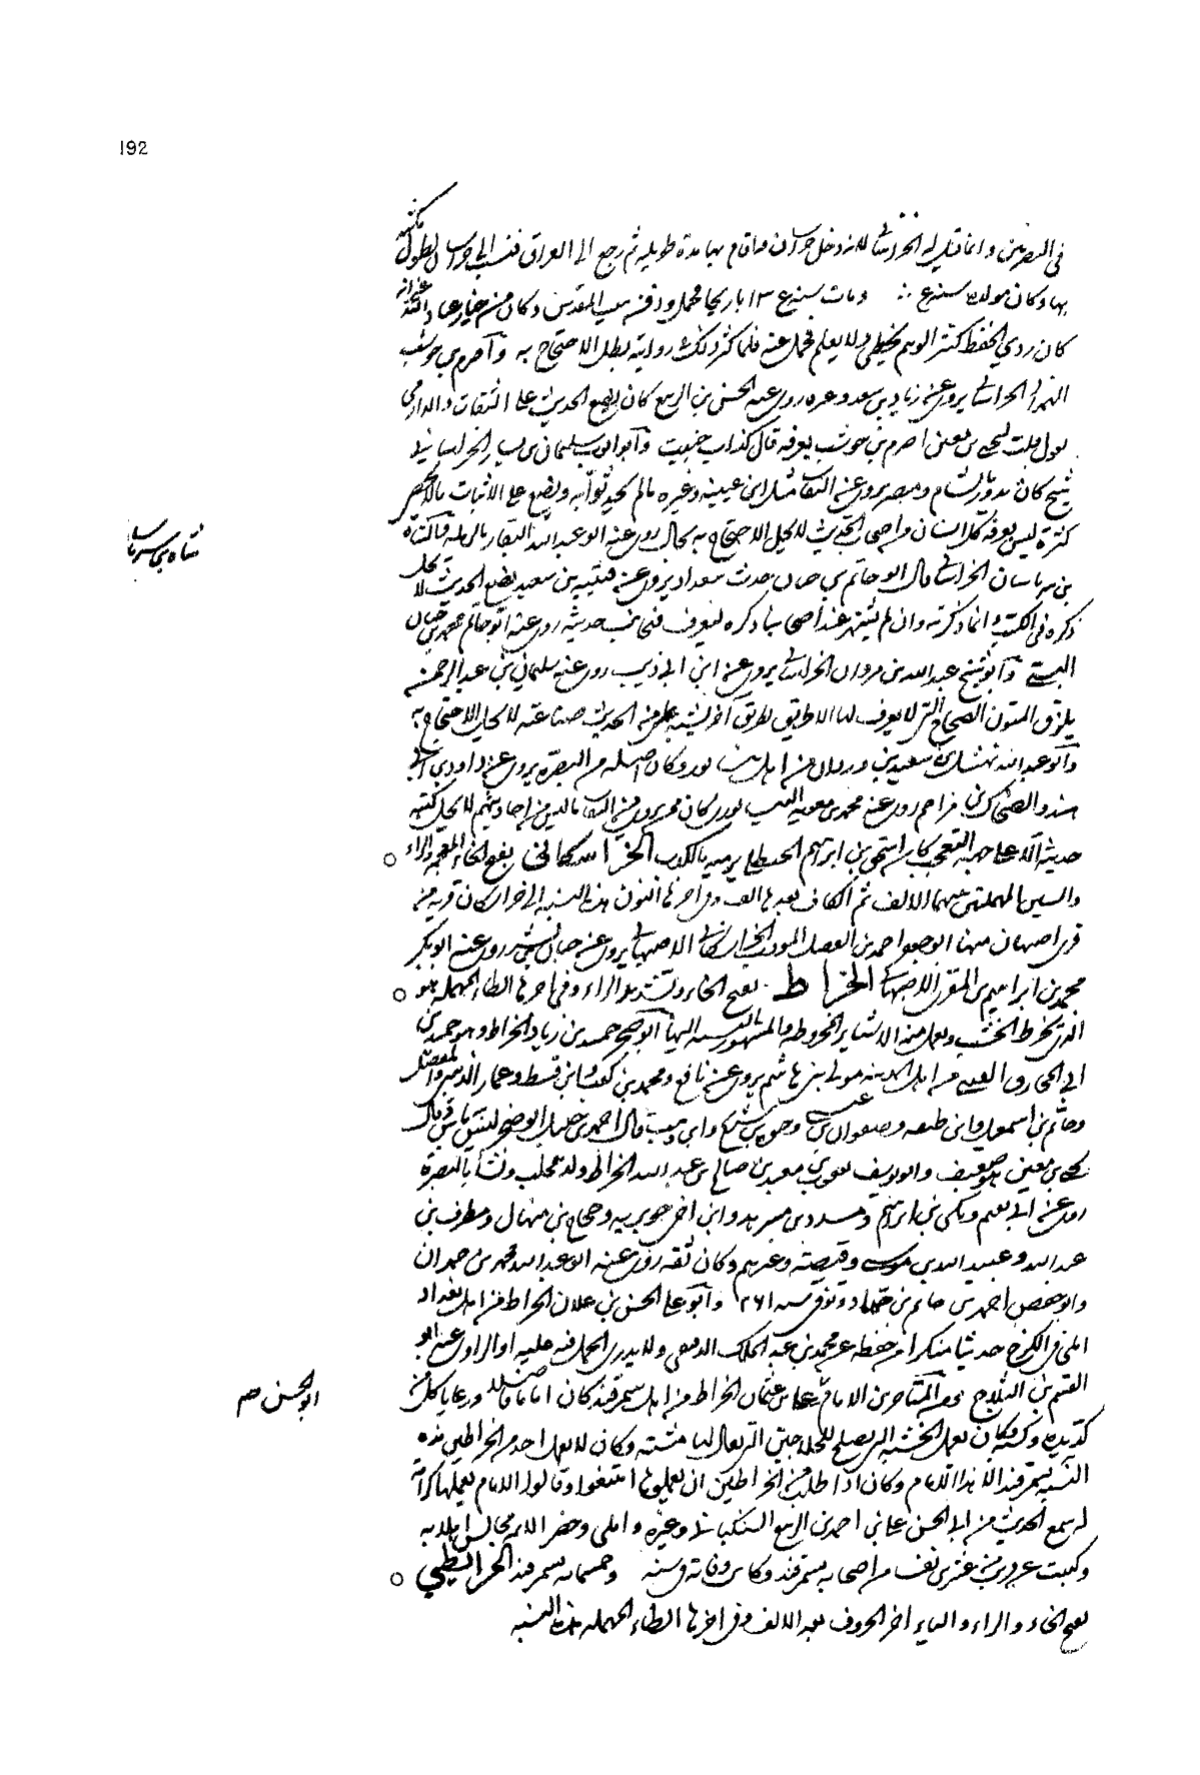 192
في البصريين وانما قيل له الخراساني لانه دخل خراسان واقام بها مدة طويلة ثم رجع الى العراق فنسب الى خراسان لطول مكثه
بها وكان مولده سنة ومات سنة ودفن ببيت المقدس وكان من خيار عباد الله غير انه
كان ردي الحفظ كثير الوهم يخطي ولا يعلم فحمل عنه فلما كثر ذلك في روايته بطل الاحتجاج به واصرم بن حوشب
الخراساني يروي عن زياد بن سعد وغيره روى عنه الحسن بن الربيع كان يضع الحديث على الثقات والدارمي
يقول قلت ليحيى بن معين اصرم بن حوشب تعرفه قال كذاب خبيث وابو ايوب سليمان بن بشار الخراساني
شيخ كان يدور بالشام ومصر يروي عن الثقات مثل ابن عيينة وغيره مالم يحدثوا به ويضع على الاثبات مالا يحصى
كثرة ليس يعرفه كل انسان من اصحاب الحديث لا يحل الاحتجاج به بحال روى عنه ابو عبد الله العطار بالرملة وشاه
شاه بن شيرباميان
بن الخراساني قال ابو حاتم بن حبان حدث ببغداد يروي عن قتيبة بن سعيد يضع الحديث لا يحل
ذكره في الكتب وانما ذكرته وان لم يشتهر عند اصحابنا ذكره ليعرف فيجانب حديثه روى عنه ابو حاتم محمد بن حبان
البستي وابو شيخ عبد الله بن مروان الخراساني يروي عن ابن ابي ذيب روى عنه سليمان بن عبد الرحمن
يلزق المتون الصحاح التي لا يعرف لها الا طريق واحد بطريق آخر ليشتبه على من الحديث صناعته لا يحل الاحتجاج به
وابو عبد الله نهشل بن سعيد بن وردان من اهل نيسابور وكان اصله من البصرة يروي عن داود بن ابي
هند والضحاك بن مزاحم روى عنه محمد بن معوية النيسابوري كان ممن يروي عن الثقات ما ليس من احاديثهم لا يحل كتبة
حديثه الا على جهة التعجب كان اسحق بن ابراهيم الحنظلي يرميه بالكذب الخراسكاني بفتح الخاء المعجمة والراء
والسين المهملتين بينهما الالف ثم الكاف بعدها الف وفي اخرها النون هذه النسبة الى خراسكان قرية من
قرى اصبهان منها ابو جعفر احمد بن الفضل المودب الخراسكاني الاصبهاني يروي عن حبان بن بشر روى عنه ابو بكر
محمد بن ابراهيم بن المقري الاصبهاني الخراط بفتح الخاء وتشديد الراء وفي اخرها الطاء المهملة هو
الذي يخرط الخشب ويعمل منه الاشياء المخروطة والمشهور بالنسبة اليها ابو صخر حميد بن زياد الخراط وهو حميد بن
ابي المخارق من اهل المدينة مولى بني هاشم يروي عن نافع ومحمد بن كعب وابن قسيط وعمار الدهني روى عنه المفضل
وحاتم بن اسمعيل وابن لهيعة وصفوان بن عيسى وحيوة بن شريح وابن وهب قال احمد بن حنبل ابو صخر ليس به باس وقال
يحيى بن معين هو ضعيف وابو يوسف يعقوب بن معبد بن صالح بن عبد الله الخراط ولد بحلب ونشا بالبصرة
روى عن ابي نعيم ومكي بن ابراهيم ومسدد بن مسرهد وابن اخي جويرية وحجاج بن منهال ومطرف بن
عبد الله وعبيد الله بن موسى وقبيصة وغيرهم وكان ثقة روى عنه ابو عبد الله محمد بن حمدان
وابو حفص احمد بن حاتم بن حماد وتوفي سنة ٢٦١ وابو علي الحسن بن علان الخراط من اهل بغداد
املى في الكرخ حديثا منكرا من حفظه عن محمد بن عبد الملك الدقيقي ولا يدرى الحمل فيه عليه او الراوي عنه ابو
القسم بن الثلاج ومن المتاخرين الامام علي بن عثمان الخراط من اهل سمرقند كان اماما فاضلا ورعا ياكل من
ابو الحسن صح
كد يده وكسبه وكان يعمل الخشبة التي يصلح للحلاجين التي يقال لها مشته وكان لا يعمل احد من الخراطين هذه
الخشبة بسمرقند الا هذا الامام وكان اذا طلب من الخراطين ان يعملوها امتنعوا وقالوا الامام يعملها كرامة
له سمع الحديث من ابي الحسن علي بن احمد بن الربيع السنكباثي وغيره واملى وحضر الائمة مجالس املائه
وكتبت عن قريب من عشرين نفسا من اصحابه بسمرقند وكانت وفاته في سنة وخمسمائة بسمرقند الخرائطي
بفتح الخاء والراء والياء اخر الحروف بعد الالف وفي اخرها الطاء المهملة هذه النسبة